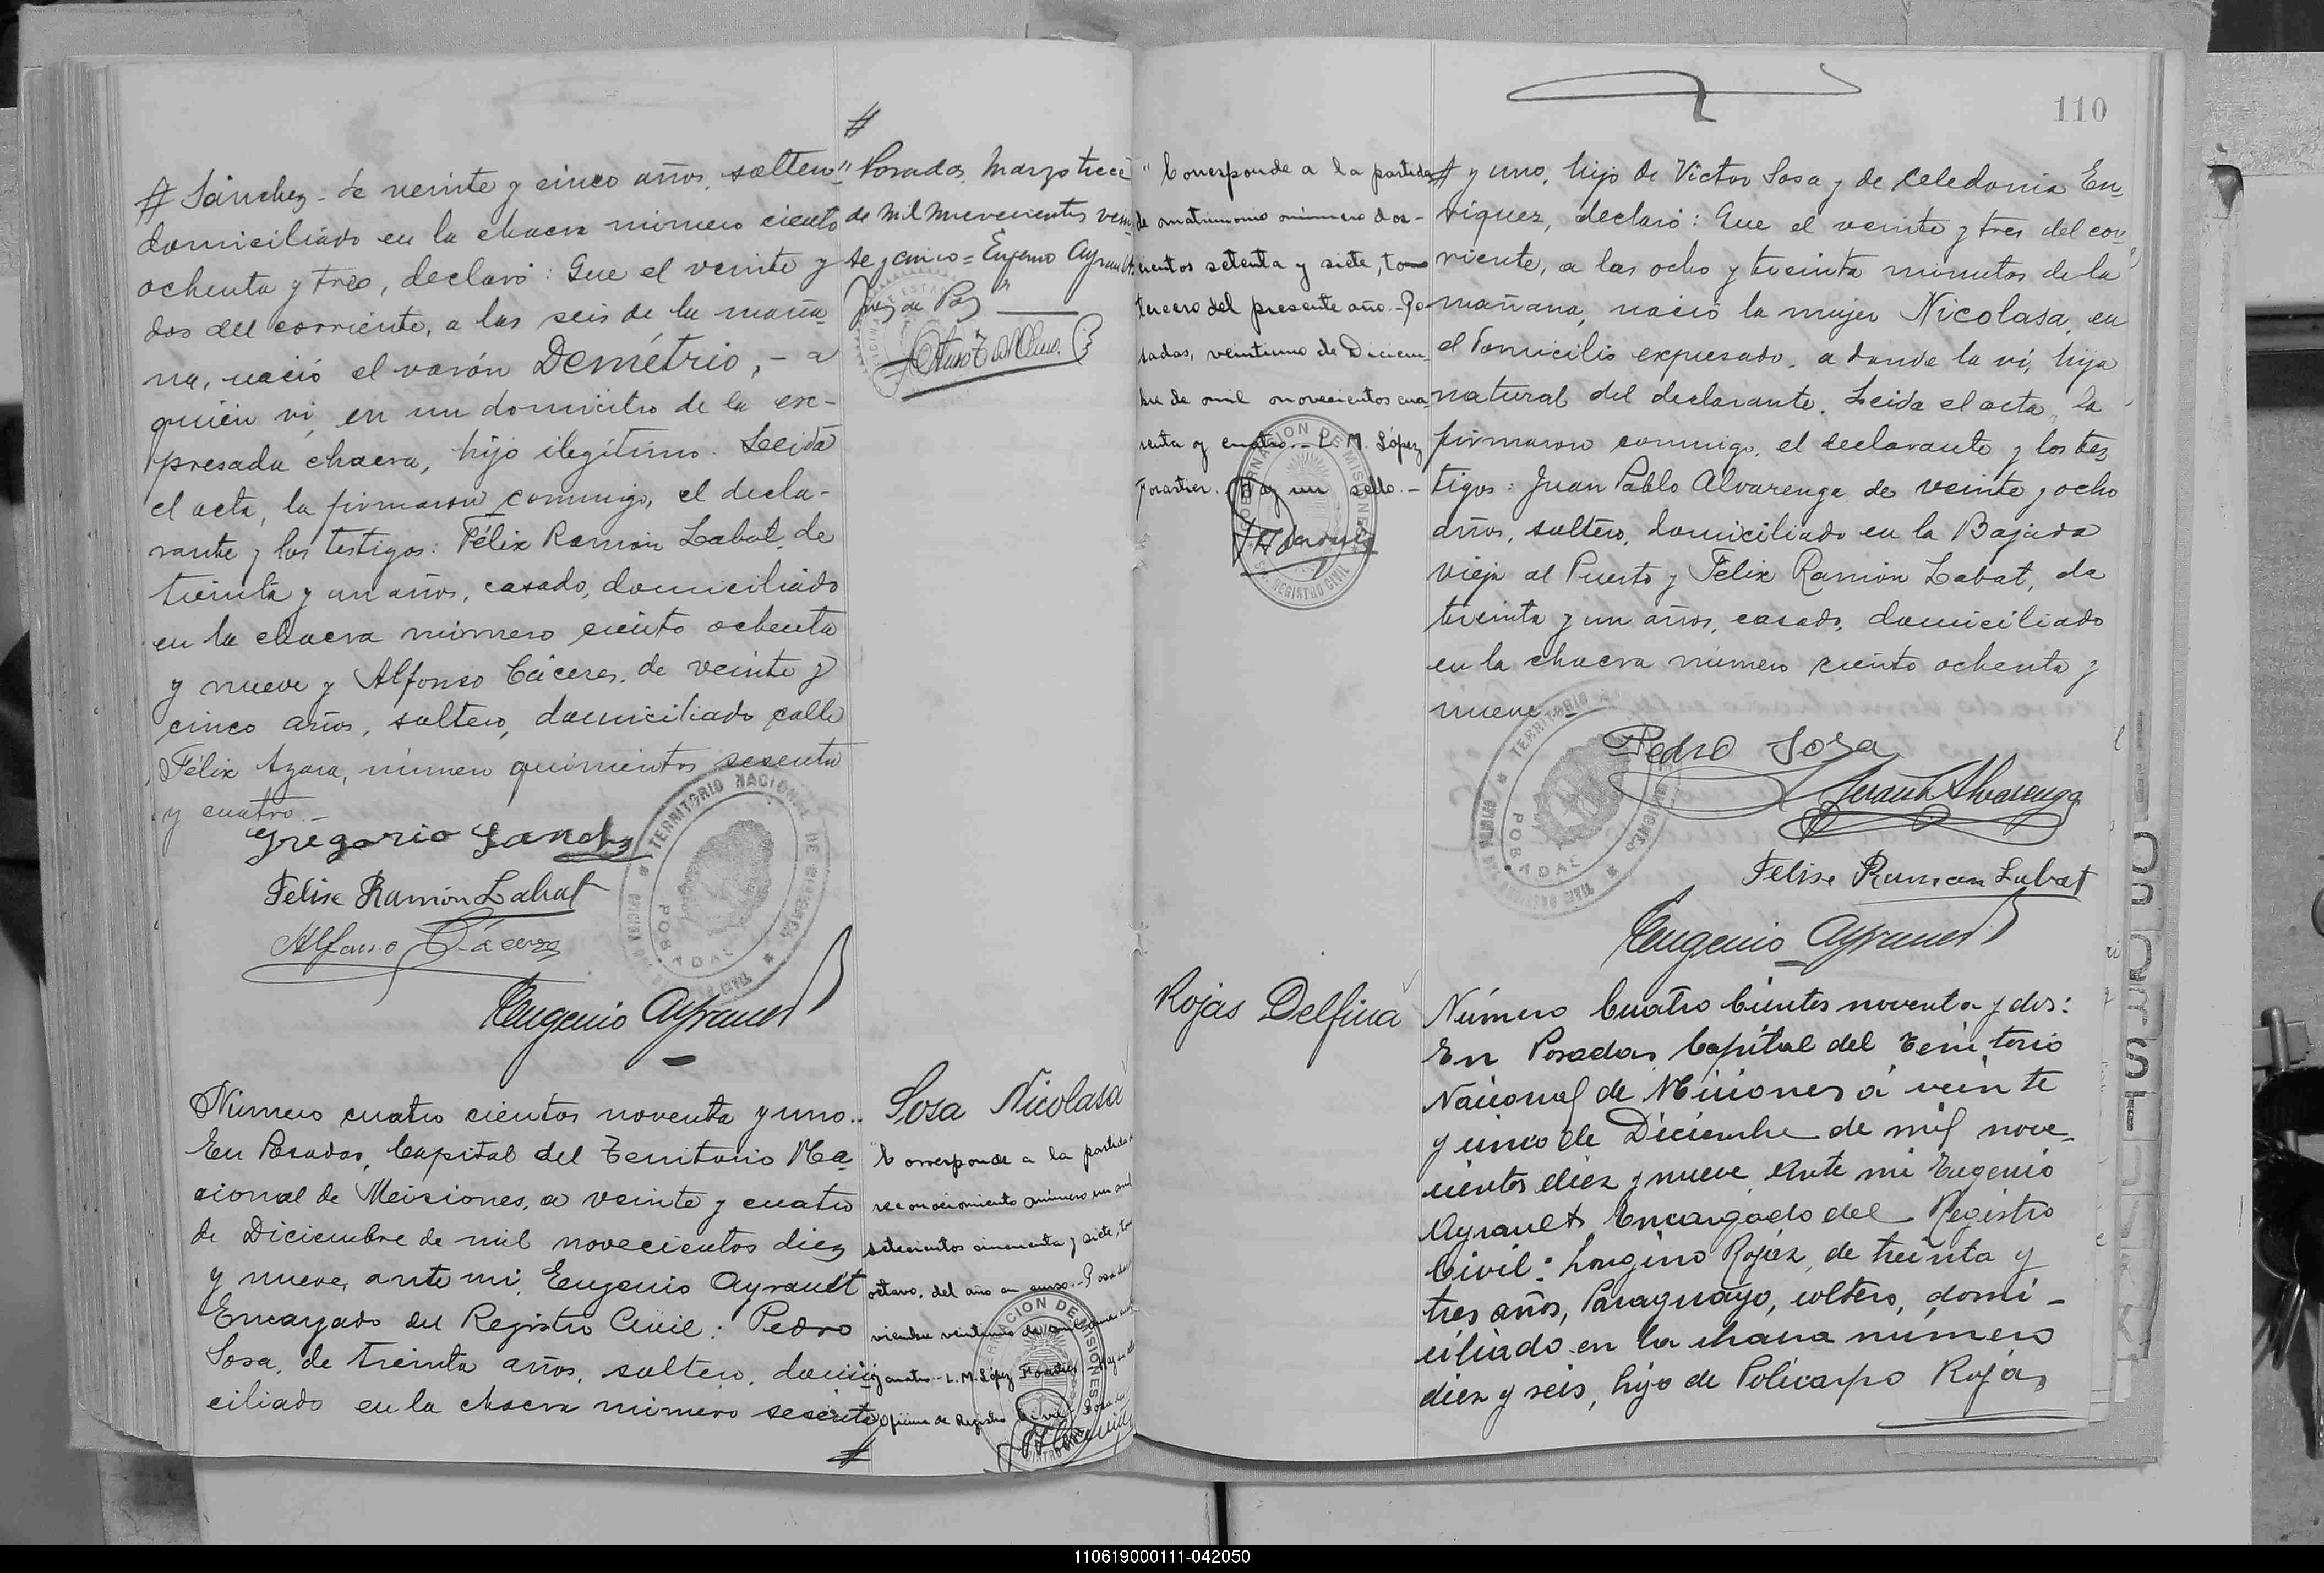 # Sánchez - de veinte y cinco años, soltero
domiciliado en la chacra número ciento
ochenta y tres, declaró: Que el veinte y
dos del corriente, a las seis de la maña-
na, nació el varón Demétrio, - a
quien vi, en un domicilio de la ex-
presada chacra, hijo ilegítimo. Leida
el acta, la firmaron conmigo, el decla-
rante y los testigos: Félix Ramón Labat, de
treinta y un años, casado, domiciliado
en la chacra número ciento ochenta
y nueve y Alfonso Cáceres, de veinte y
cinco años, soltero, domiciliado calle
Félix Azara, número quinientos sesenta
y cuatro.-
Gregorio Sanchz
Felix Ramón Labat
Alfonso Cáceres
Eugenio Ayrault
TERRITORIO NACIONAL DE MISIONES
POSADAS
#
" Posadas, Marzo trece
de mil novecientos vein
te y cinco = Eugenio Ayrault
Juez de Paz "
Número cuatro cientos noventa y uno..
En Posadas, Capital del Territorio Na-
cional de Misiones, a veinte y cuatro
de Diciembre de mil novecientos diez
y nueve, ante mi, Eugenio Ayrault
Encargado del Registro Civil: Pedro
Sosa, de treinta años, soltero, domi-
ciliado en la chacra número sesenta
#
Sosa Nicolasa
"Corresponde a la partida de
reconocimiento número un mil
setecientos cincuenta y siete, tomo
octavo, del año en curso.- Posadas
viembre veintiuno de mil
y cuatro.- L. M. López Forastier Hay un
Oficina de Registro Civil Posadas
GOBERNACION DE MISIONES
110
" Corresponde a la partida
de matrimonio número dos-
cientos setenta y siete, tomo
tercero del presente año.- Po-
sadas, veintiuno de Diciem-
bre de mil novecientos cua-
renta y cuatro.- L. M. López
Forastier. Hay un sello.-
GOBERNACION DE MISIONES
REGISTRO CIVIL
# y uno, hijo de Victor Sosa y de Celedonia En-
riquez, declaró: Que el veinte y tres del cor-
riente, a las ocho y treinta minutos de la
mañana, nació la mujer Nicolasa, en
el domicilio expresado, a donde la vi, hija
natural del declarante. Leida el acta, la
firmaron conmigo, el declarante y los tes-
tigos: Juan Pablo Alvarenga de veinte y ocho
años, soltero, domiciliado en la Bajada
vieja al Puerto y Félix Ramón Labat, de
treinta y un años, casado, domiciliado
en la chacra número ciento ochenta y
nueve -
Pedro Sosa
Juan P. Alvarenga
Felix Ramon Labat
Eugenio Ayrault
TERRITORIO NACIONAL DE MISIONES
POSADAS
Rojas Delfina
Número Cuatro Cientos noventa y dos:
En Posadas, Capital del Territorio
Nacional de Misiones á veinte
y cinco de Diciembre de mil nove-
cientos diez y nueve, Ante mi Eugenio
Ayrault, Encargado del Registro
Civil: Longino Rojas, de treinta y
tres años, Paraguayo, soltero, domi-
ciliado en la chacra número
diez y seis, hijo de Policarpo Rojas,
110619000111-042050